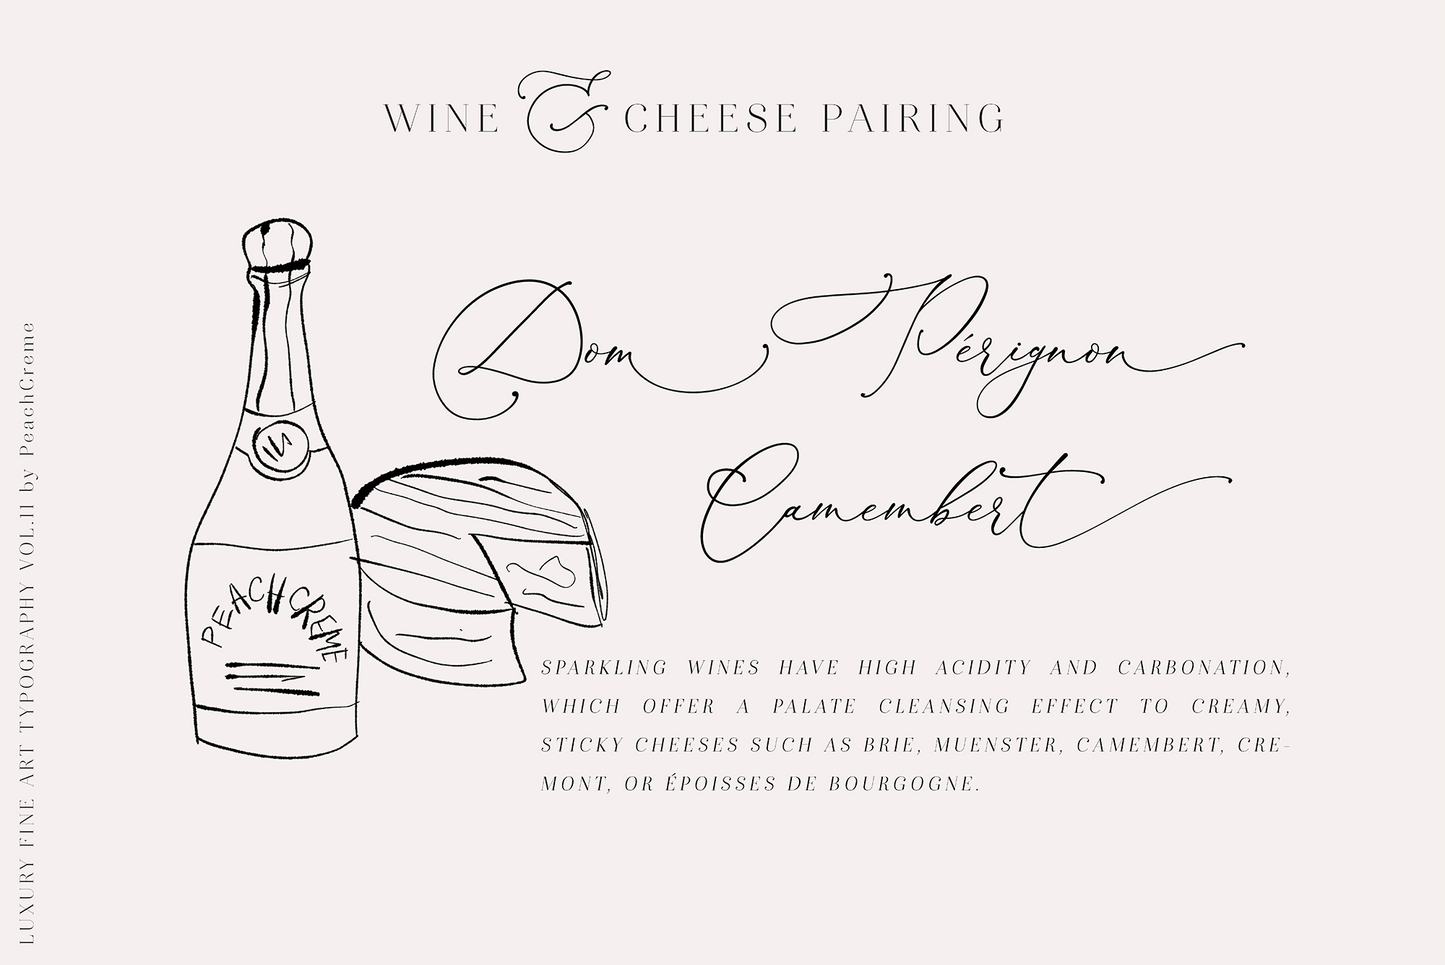 WINE & CHEESE PAIRING
Dom Pérignon
Camembert
PEACH CREME
SPARKLING WINES HAVE HIGH ACIDITY AND CARBONATION,
WHICH OFFER A PALATE CLEANSING EFFECT TO CREAMY,
STICKY CHEESES SUCH AS BRIE, MUENSTER, CAMEMBERT, CRE-
MONT, OR ÉPOISSES DE BOURGOGNE.
LUXURY FINE ART TYPOGRAPHY VOL.II by PeachCreme